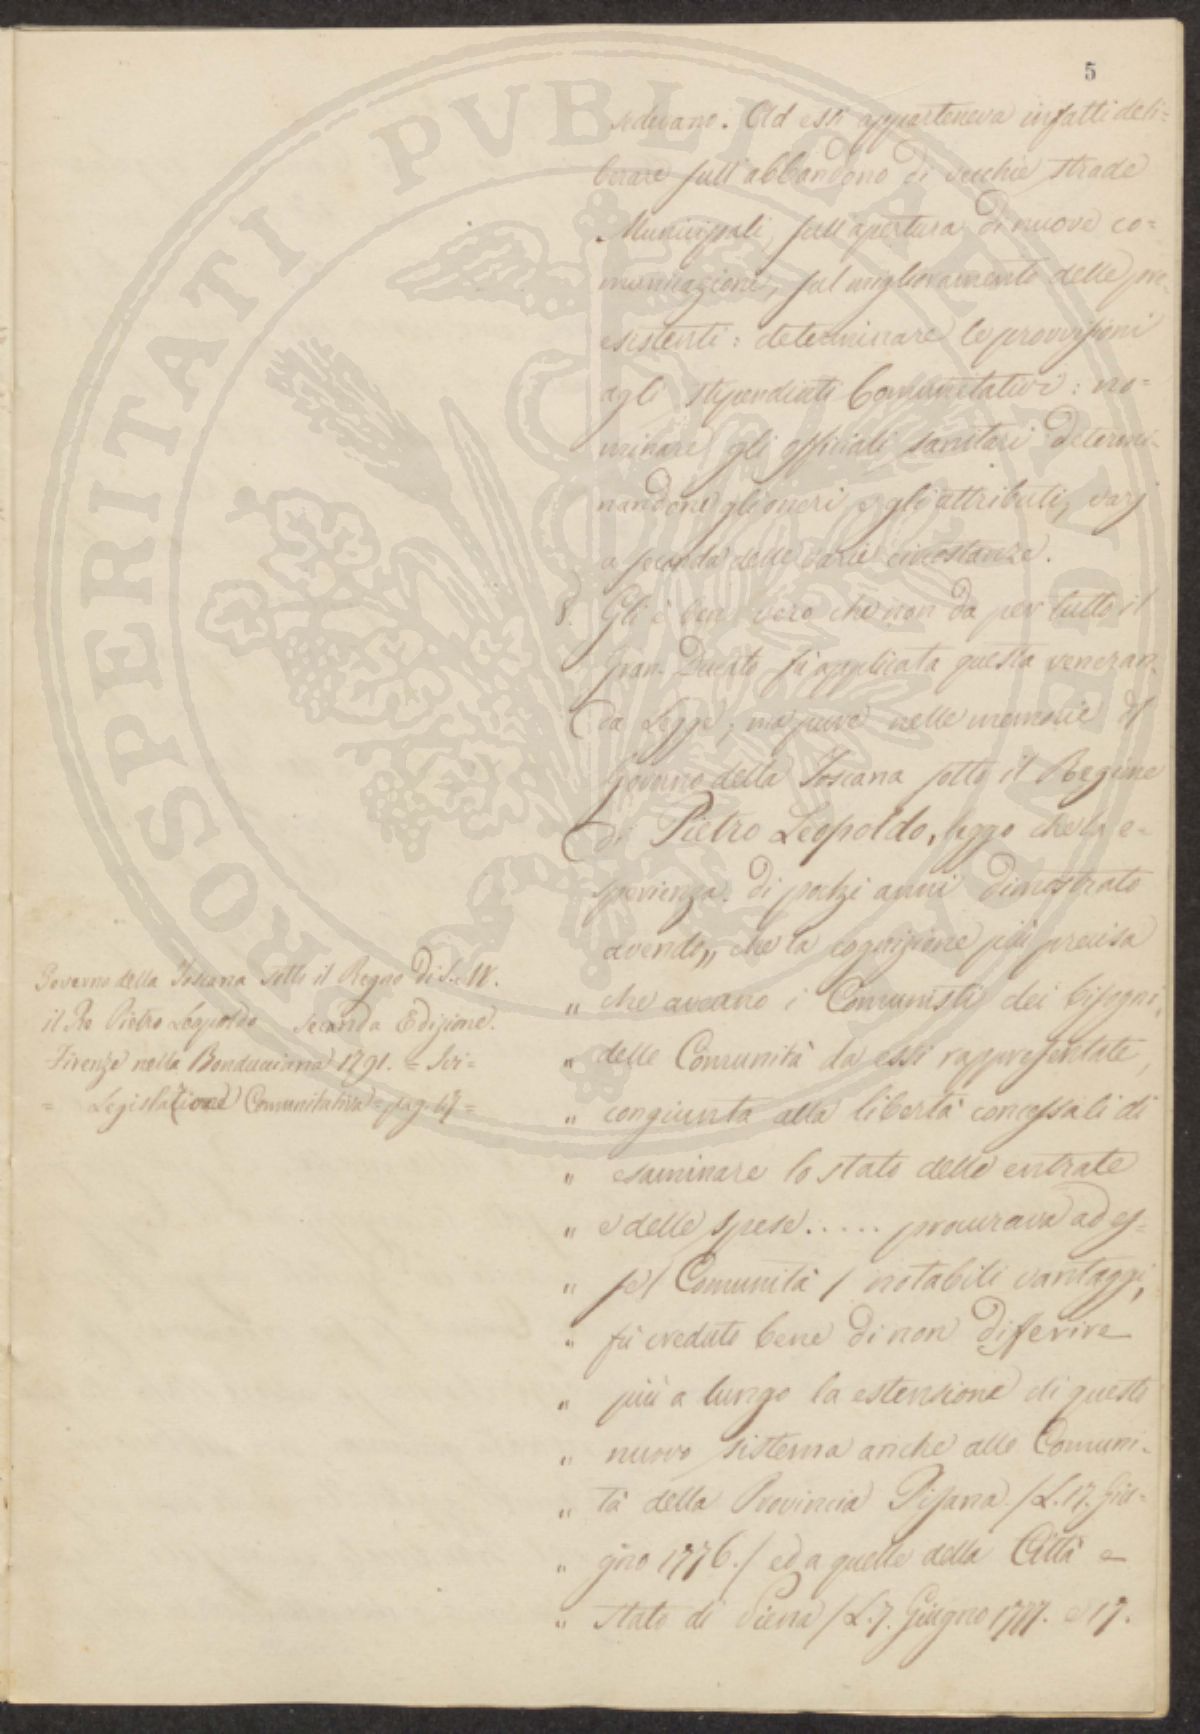 5
sedevano. Ad essi apparteneva infatti deli=
berare sull'abbandono di vecchie strade
Municipali, sull'apertura di nuove co=
municazioni, sul miglioramento delle pre=
esistenti: determinare le provvisioni
agli stipendiati Comunitativi: no=
minare gli officiali sanitari determi=
nandone gli oneri, e gli attributi, varj
a seconda delle varie circostanze.
8. Gli è ben vero che non da per tutto il
Gran-Ducato fù applicata questa veneran=
da Legge, ma pure nelle memorie del
Governo della Toscana sotto il Regime
di Pietro Leopoldo, leggo che la e=
sperienza di pochi anni dimostrato
avendo „ che la cognizione più precisa
„ che aveano i Comunisti dei bisogni
„ delle Comunità da essi rappresentate,
„ congiunta alla libertà concessali di
„ esaminare lo stato delle entrate
„ e delle spese..... procurava ad es=
„ se / Comunità / notabili vantaggi,
„ fù creduto bene di non differire
„ più a lungo la estensione di questo
„ nuovo sistema anche alle Comuni=
„ tà della Provincia Pisana / L. 17. Giu=
„ gno 1776. / ed a quelle della Città e
„ Stato di Siena / L. 7. Giugno 1777. e 17.
Governo della Toscana sotto il Regno di S. M.
il Re Pietro Leopoldo Seconda Edizione.
Firenze nella Bonducciana 1791. = Ivi =
= Legislazione Comunitativa = pag. 67 =
PROSPERITATI PVBLICAE